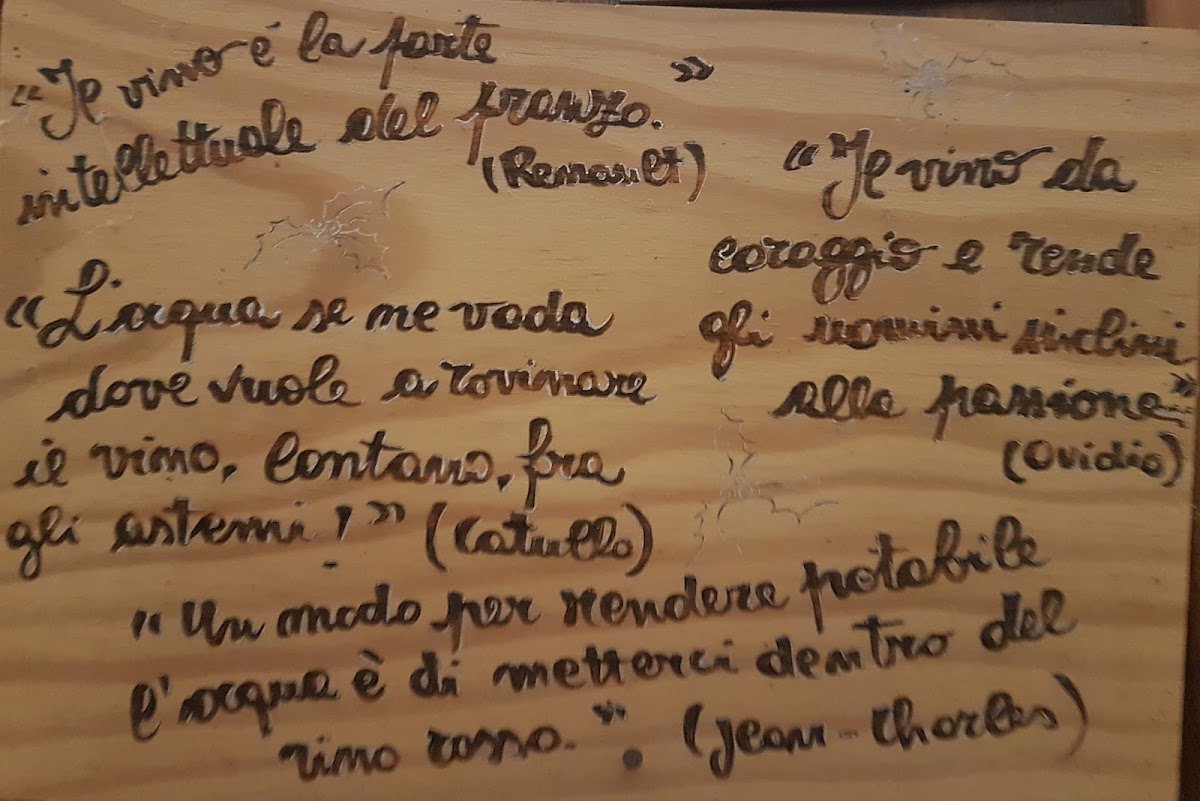 “Il vino é la parte
intellettuale del pranzo.”
(Renault)
“Il vino da
coraggio e rende
gli uomini inclini
alla passione”
(Ovidio)
“L'acqua se ne vada
dove vuole a rovinare
il vino, lontano, fra
gli astemi!” (Catullo)
“Un modo per rendere potabile
l'acqua è di metterci dentro del
vino rosso.”. (Jean-Charles)